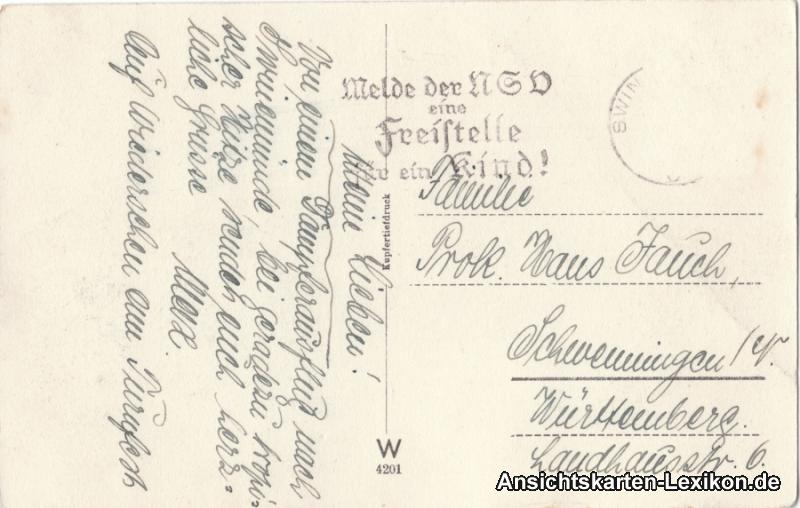 Meine Lieben!
Von einem Dampferausflug nach
Swinemünde, bei geradezu tropi-
scher Hitze sendet euch herz-
liche Grüsse Max.
Auf Wiedersehen am Turnfest
Melde der NSV
eine
Freistelle
für ein Kind!
SWIN
Kupfertiefdruck
W
4201
Familie
Prok. Hans Jauch,
Schwenningen/N.
Württemberg.
Landhausstr. 6.
Ansichtskarten-Lexikon.de